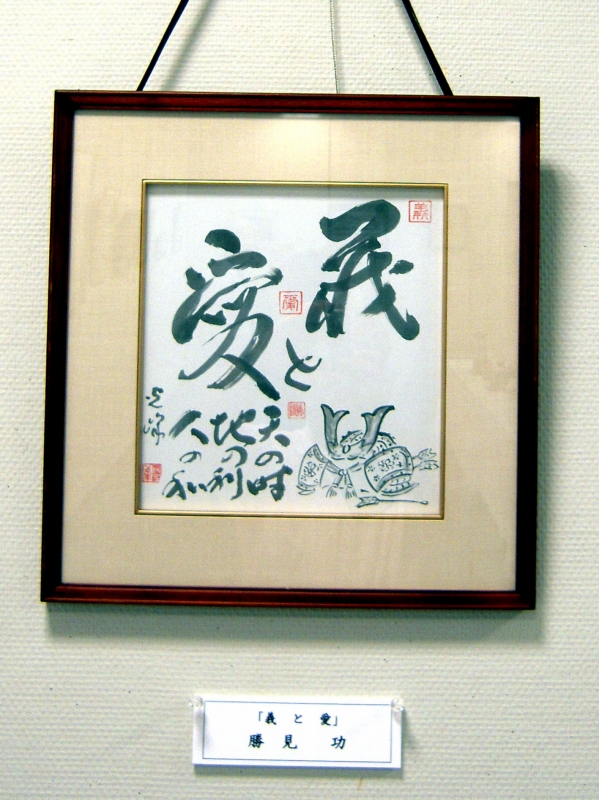 義
と
愛
天の時
地の利
人の和
「義 と 愛」
勝 見 功